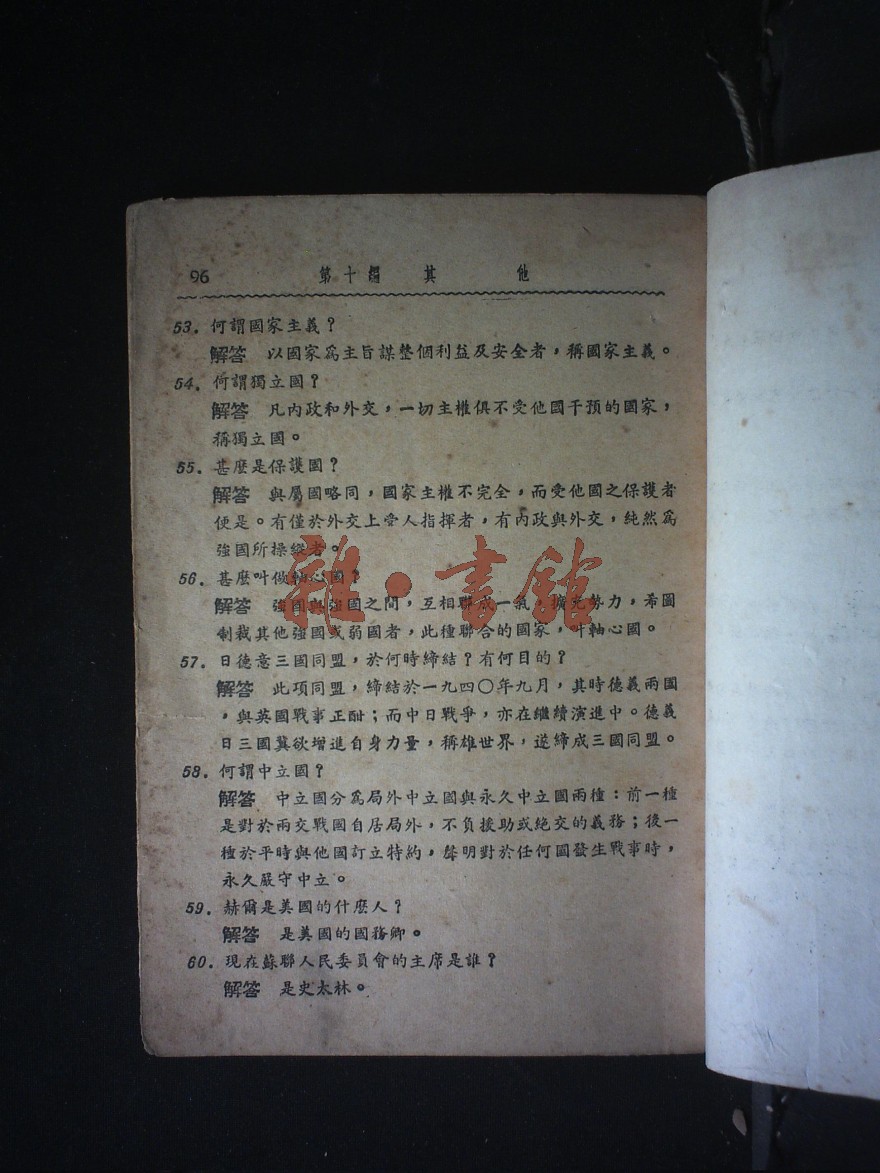 96 第十編 其 他
53. 何謂國家主義？
解答 以國家爲主旨謀整個利益及安全者，稱國家主義。
54. 何謂獨立國？
解答 凡內政和外交，一切主權俱不受他國干預的國家，
稱獨立國。
55. 甚麼是保護國？
解答 與屬國略同，國家主權不完全，而受他國之保護者
便是。有僅於外交上受人指揮者，有內政與外交，純然爲
強國所操縱者。
56. 甚麼叫做軸心國？
解答 強國與強國之間，互相聯成一氣，擴充勢力，希圖
制裁其他強國或弱國者，此種聯合的國家，叫軸心國。
57. 日德意三國同盟，於何時締結？有何目的？
解答 此項同盟，締結於一九四〇年九月，其時德義兩國
，與英國戰事正酣；而中日戰爭，亦在繼續演進中。德義
日三國冀欲增進自身力量，稱雄世界，遂締成三國同盟。
58. 何謂中立國？
解答 中立國分爲局外中立國與永久中立國兩種：前一種
是對於兩交戰國自居局外，不負援助或絶交的義務；後一
種於平時與他國訂立特約，聲明對於任何國發生戰事時，
永久嚴守中立。
59. 赫爾是美國的什麼人？
解答 是美國的國務卿。
60. 現在蘇聯人民委員會的主席是誰？
解答 是史太林。
雜·書館